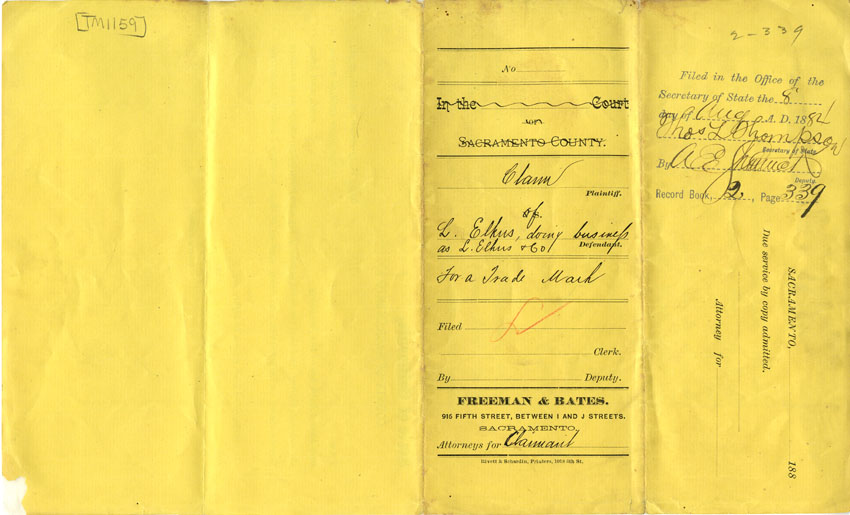 [TM1159]
No
In the Court
OF
SACRAMENTO COUNTY.
Claim
Plaintiff.
of
L. Elkus, doing business
as L. Elkus & Co
Defendant.
For a Trade Mark
Filed
Clerk.
By Deputy.
FREEMAN & BATES.
915 FIFTH STREET, BETWEEN I AND J STREETS.
SACRAMENTO,
Attorneys for Claimant
2-339
Filed in the Office of the
Secretary of State the 8
day of Aug A. D. 1884
Thos L Thompson
Secretary of State
By A E
Deputy.
Record Book, 2, Page 339
SACRAMENTO, 188
Due service by copy admitted.
Attorney for